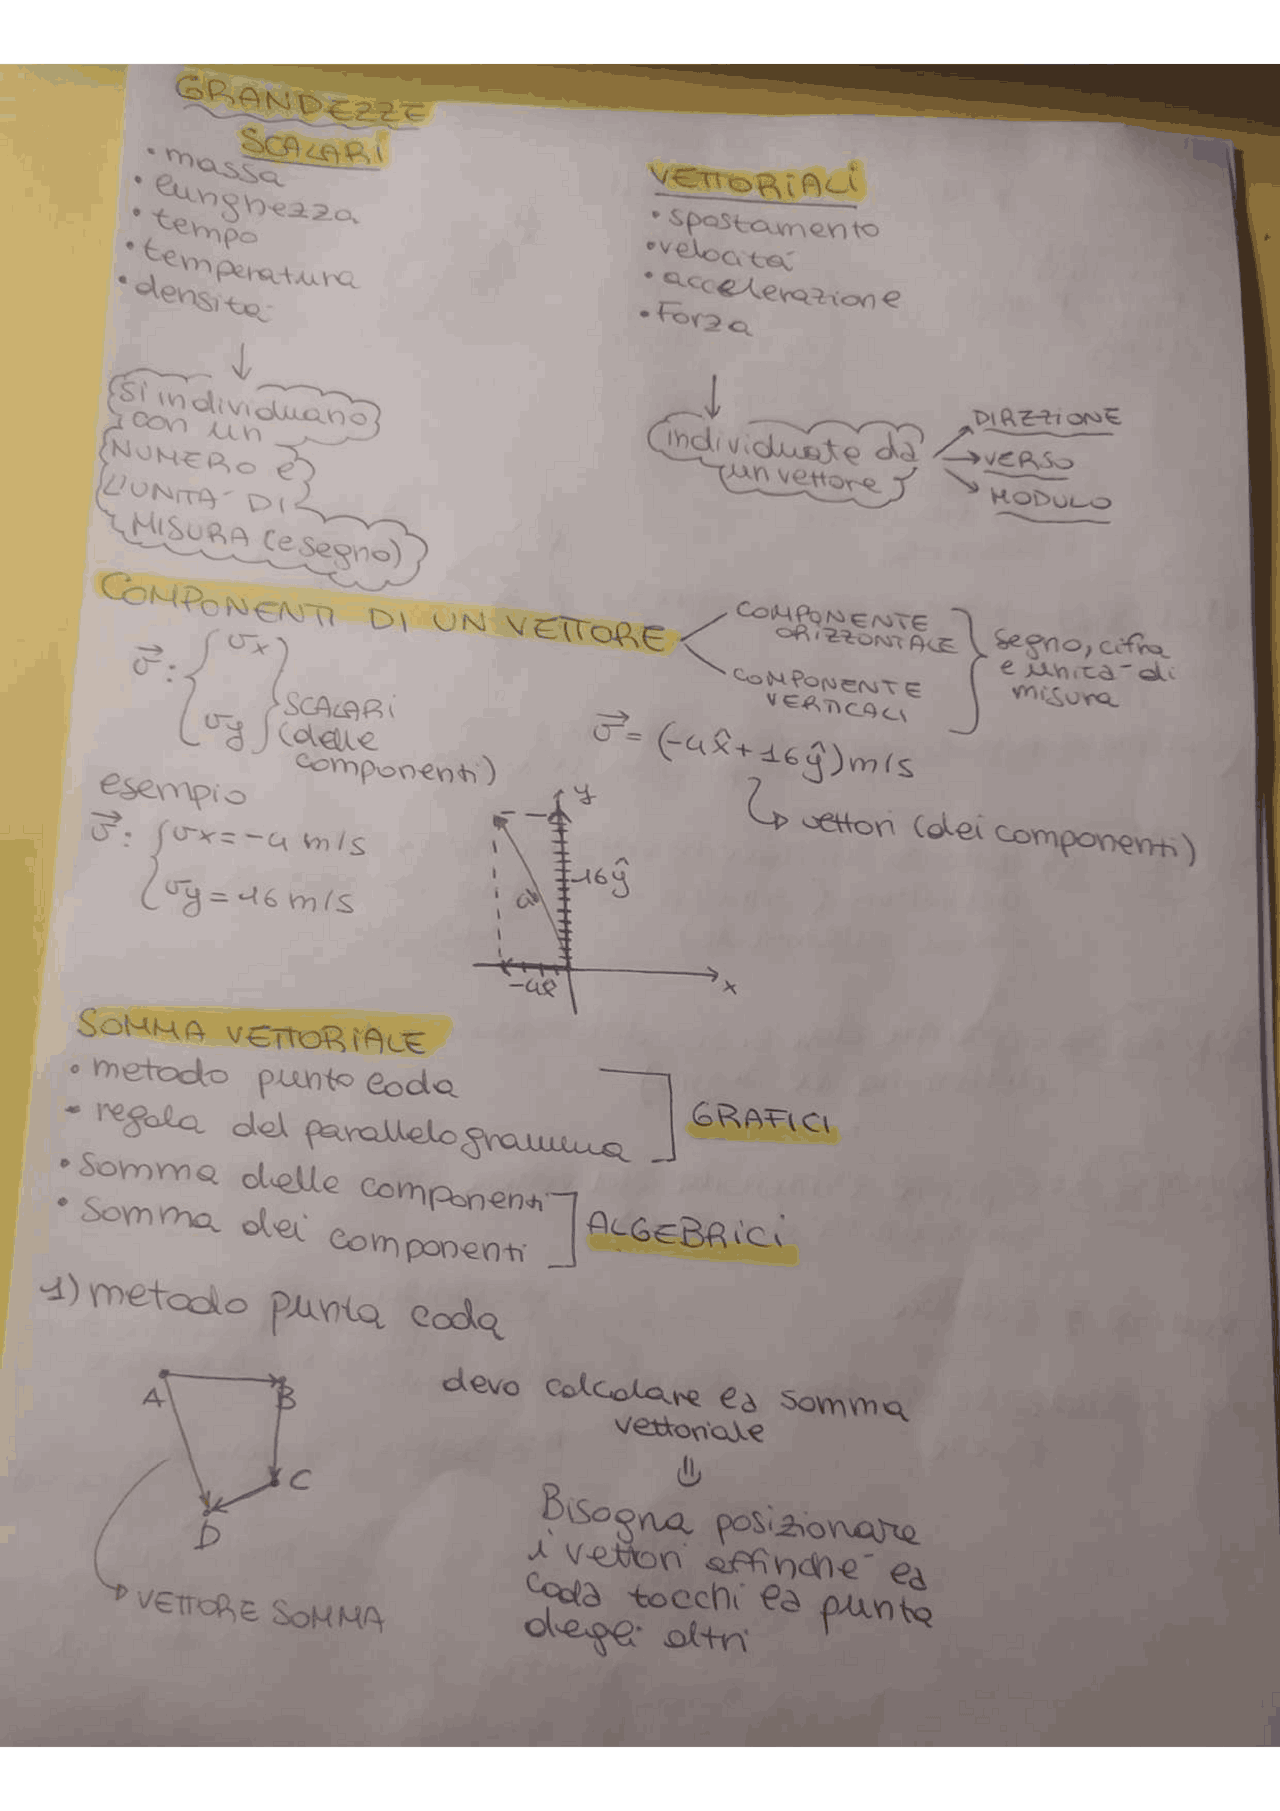 GRANDEZZE
SCALARI
• massa
• lunghezza
• tempo
• temperatura
• densità
↓
si individuano
con un
NUMERO e
L'UNITA' DI
MISURA (e segno)
VETTORIALI
• spostamento
• velocità
• accelerazione
• Forza
↓
individuate da
un vettore
DIREZIONE
→ VERSO
MODULO
COMPONENTI DI UN VETTORE
COMPONENTE
ORIZZONTALE
COMPONENTE
VERTICALI
segno, cifra
e unità di
misura
v⃗: { vx
vy
SCALARI
(delle
componenti)
v⃗ = (-4x̂ + 16ŷ) m/s
vettori (dei componenti)
esempio
v⃗: { vx = -4 m/s
vy = 16 m/s
y
16ŷ
-4x̂
x
SOMMA VETTORIALE
• metodo punto coda
• regola del parallelogramma
GRAFICI
• somma delle componenti
• somma dei componenti
ALGEBRICI
1) metodo punta coda
A
B
C
D
VETTORE SOMMA
devo calcolare la somma
vettoriale
⇓
Bisogna posizionare
i vettori affinché la
coda tocchi la punta
degli altri